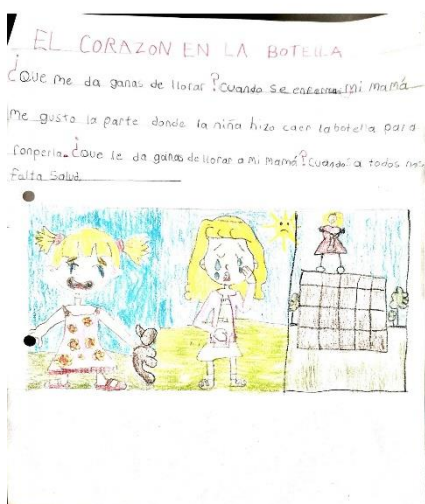 EL CORAZON EN LA BOTELLA
¿Que me da ganas de llorar? Cuando se enferma mi mamá
Me gusto la parte donde la niña hizo caer la botella para
romperla. ¿Que le da ganas de llorar a mi Mamá? Cuando a todos nos
falta Salud.